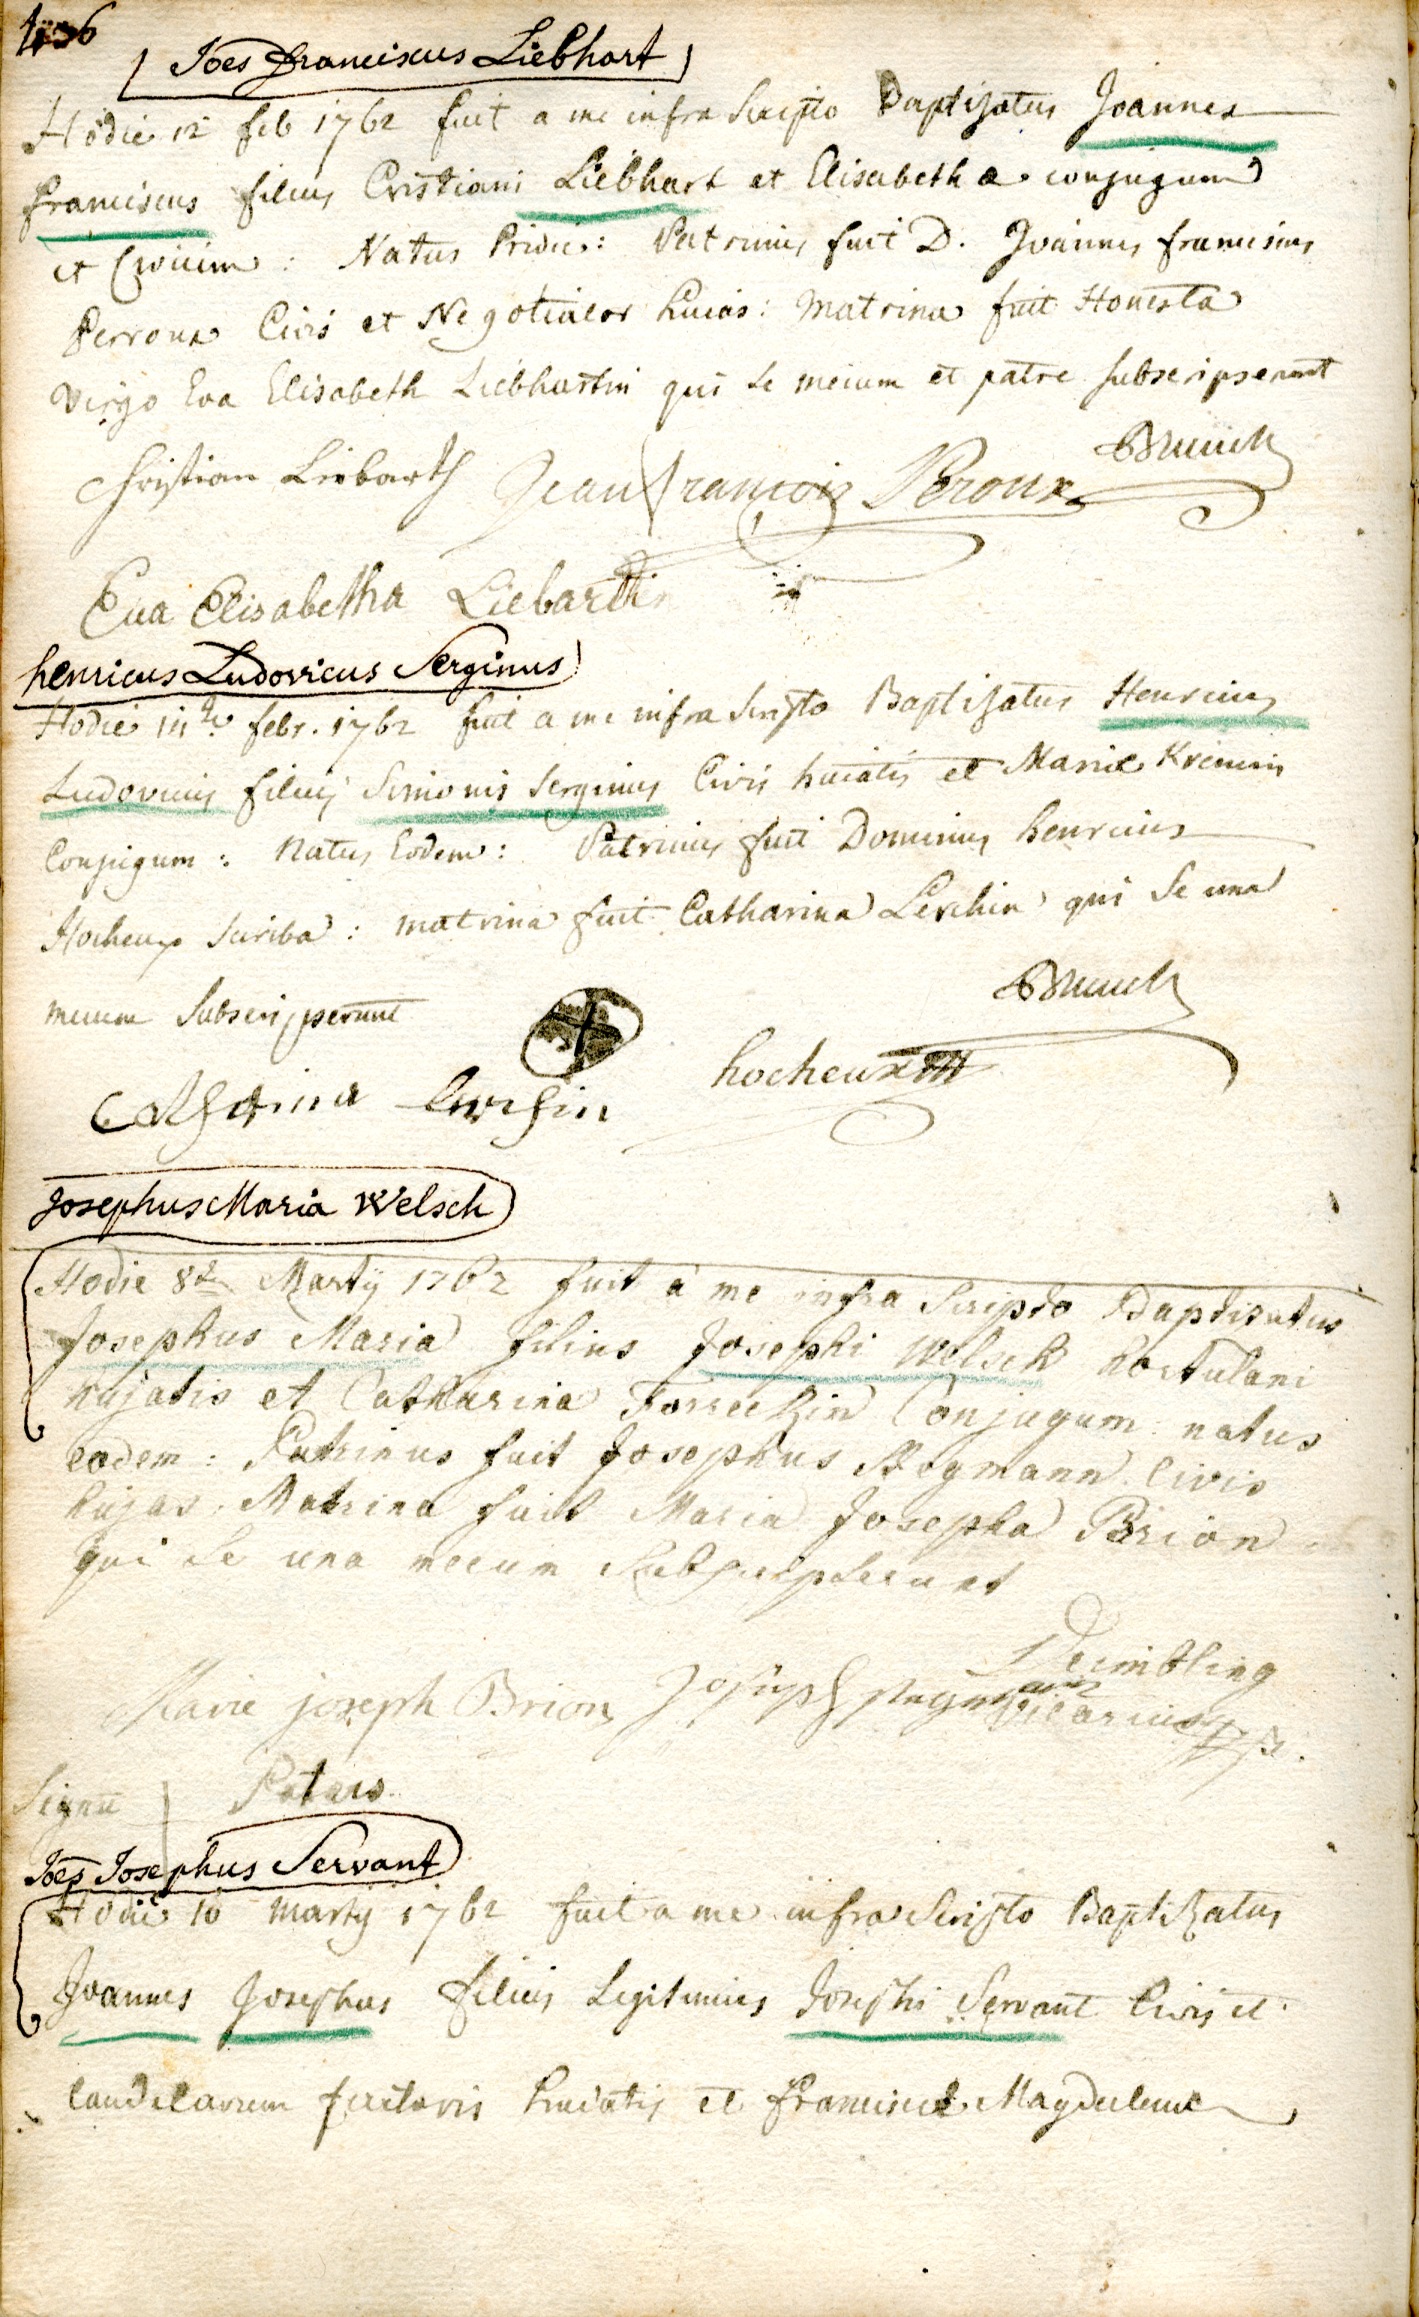 Joes Franciscus Liebhart
Hodie 12 feb 1762 fuit a me infra Scripto Baptisatus Joannes
franciscus filius Cristiani Liebhart et Elisabetha conjugum
et Civium : Natus Pridie : Patrinus fuit D. Joannes franciscus
Perroux Civis et Negotiator huias : Matrina fuit Honesta
Virgo Eva Elisabeth Liebhartin qui se mecum et patre subscripserunt
Bruuck
Christian Liebarth Jean francois Peroux
Eua Elisabetha Liebartin
henricus Ludovicus Serginus
Hodie febr. 1762 fuit a me infra Scripto Baptisatus Henricus
Ludovicus filius Simonis Serginus Civis huiatis et Mariæ
Conjugum : Natus Eodem : Patrinus fuit Dominus henricus
Hocheux scriba : matrina fuit Catharina Lerchin qui se una
mecum Subscripserunt
Bruuck
Catharina Lerchin hocheux
Josephus Maria Welsch
Hodie 8a Martij 1762 fuit a me infra Scripto Baptisatus
Josephus Maria filius Josephi Welsch hortulani
hujatis et Catharina Conjugum : natus
eodem : Patrinus fuit Josephus Civis
hujas : Matrina fuit Maria Josepha Brion
qui se una mecum Subscripserunt
Deimbling
Marie joseph Brion Joseph Vicarius
Signu Patris
Joes Josephus Servant
Hodie 10 Martij 1762 fuit a me infra Scripto Baptisatus
Joannes Josephus filius Legitimus Josephi Servant Civis et
Candelarum factoris huiatis et franciscæ Magdalenæ